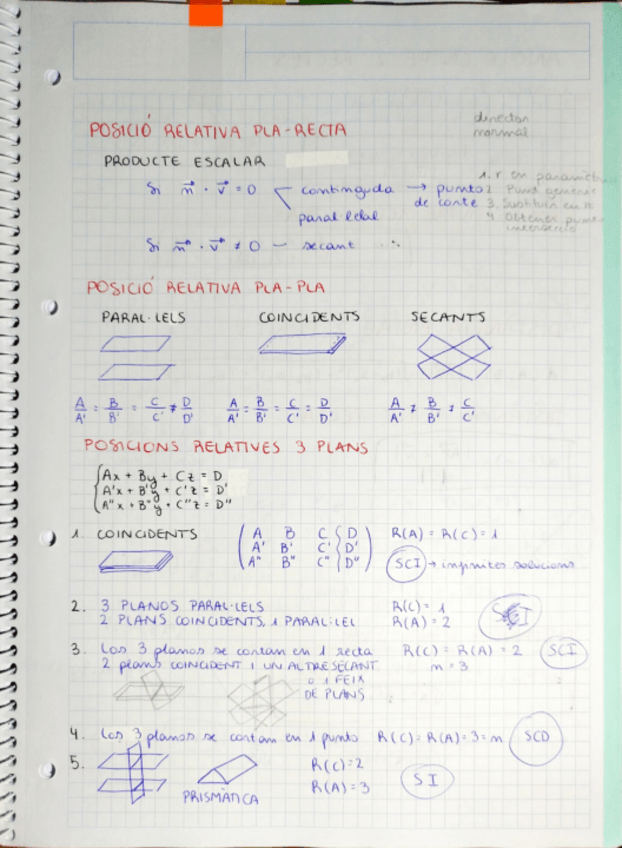 POSICIÓ RELATIVA PLA-RECTA
director
normal
PRODUCTE ESCALAR
Si n⃗ · v⃗ = 0 continguda → punto de corte
paral·lela
1. r en paramètri
2. Punt genèric
3. Substituir en π
4. Obtener punto
intersecció
Si n⃗ · v⃗ ≠ 0 — secant
POSICIÓ RELATIVA PLA-PLA
PARAL·LELS COINCIDENTS SECANTS
A/A' = B/B' = C/C' ≠ D/D' A/A' = B/B' = C/C' = D/D' A/A' ≠ B/B' ≠ C/C'
POSICIONS RELATIVES 3 PLANS
Ax + By + Cz = D
A'x + B'y + C'z = D'
A"x + B"y + C"z = D"
1. COINCIDENTS
A B C D
A' B' C' D'
A" B" C" D"
R(A) = R(C) = 1
SCI → infinites solucions
2. 3 PLANOS PARAL·LELS R(C) = 1
2 PLANS COINCIDENTS, 1 PARAL·LEL R(A) = 2
3. Los 3 planos se cortan en 1 recta R(C) = R(A) = 2 SCI
2 plans COINCIDENT I UN ALTRE SECANT n = 3
O 1 FEIX
DE PLANS
4. Los 3 planos se cortan en 1 punto R(C) = R(A) = 3 = n SCD
5. R(C) = 2
R(A) = 3 SI
PRISMÀTICA